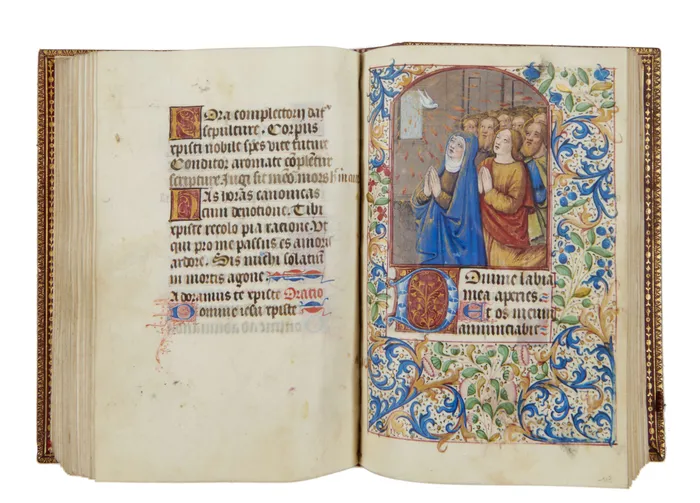 Hora completorij dat᷑
sepulture. Corpus
xp̄isti nobile spes vite future
Conditur aromate cōpletur
scriptura. Jugi sit meō mors
Has horas canonicas
cum devotione. Tibi
xpiste recolo pia ratione. Ut
qui pro me passus es amoris
ardore. Sis michi solatium
in mortis agone
Adoramus te xpiste Oratio
Domine iesu xpiste
Domine labia
mea aperies.
Et os meum
annunciabit